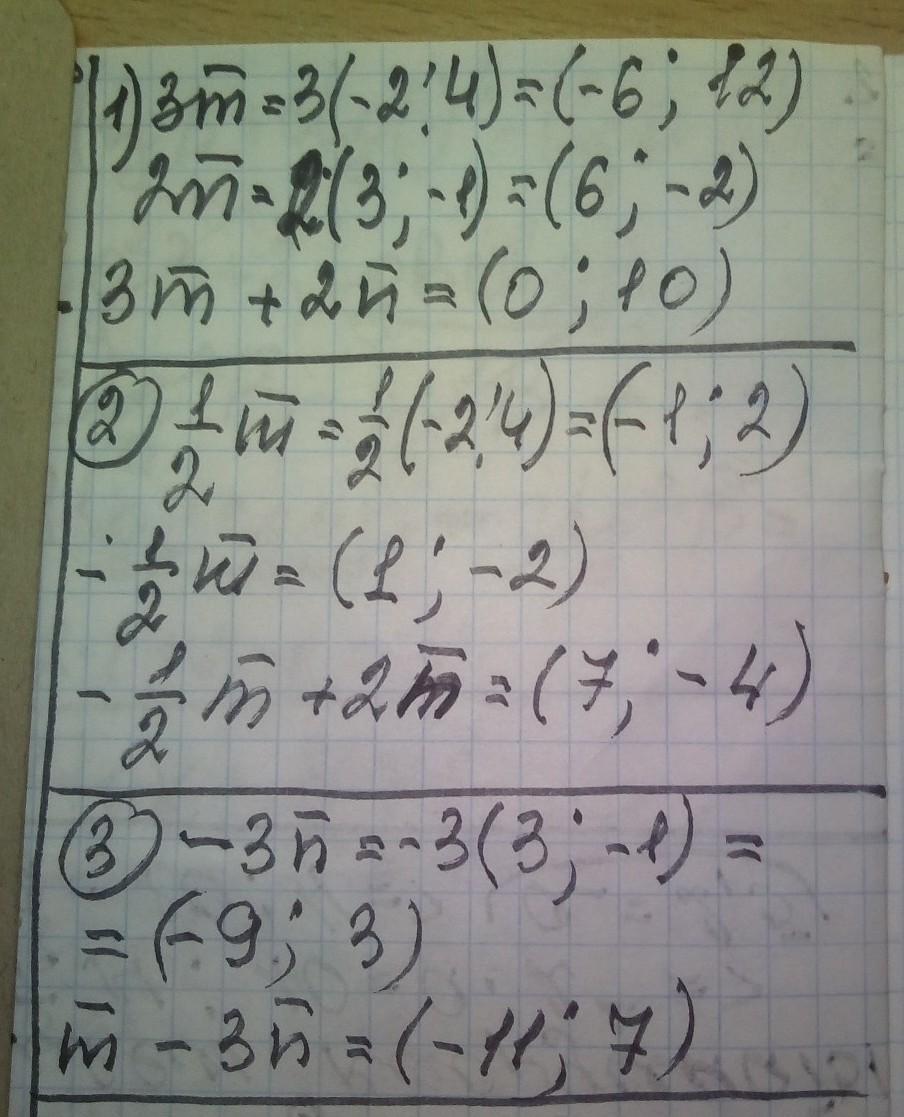 1) 3m̄ = 3(-2; 4) = (-6; 12)
2n̄ = 2(3; -1) = (6; -2)
3m̄ + 2n̄ = (0; 10)
② 1/2 m̄ = 1/2 (-2; 4) = (-1; 2)
- 1/2 m̄ = (1; -2)
- 1/2 m̄ + 2n̄ = (7; -4)
③ -3n̄ = -3(3; -1) =
= (-9; 3)
m̄ - 3n̄ = (-11; 7)